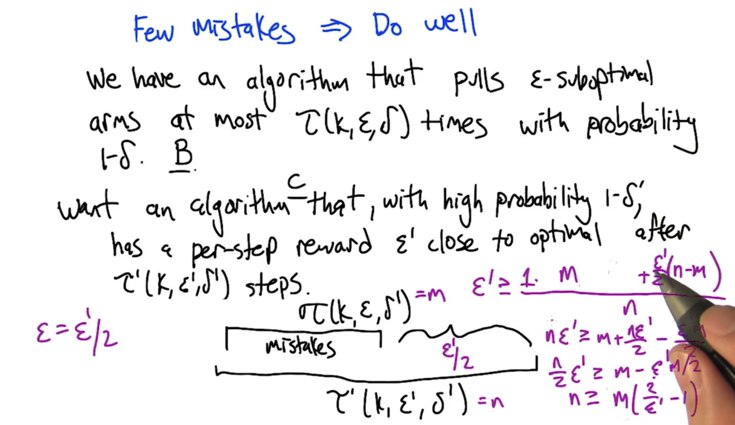 Few Mistakes ⇒ Do well
We have an algorithm that pulls ε-suboptimal
arms at most τ(k, ε, δ) times with probability
1-δ. B
Want an algorithm C that, with high probability 1-δ',
has a per-step reward ε' close to optimal after
τ'(k, ε', δ') steps.
ε' ≥ 1. m + ε'/2 (n-m)
n
τ(k, ε, δ') = m
ε = ε'/2
mistakes
ε'/2
τ'(k, ε', δ') = n
nε' ≥ m + nε'/2 -
n/2 ε' ≥ m - ε'm/2
n ≥ m(2/ε' - 1)